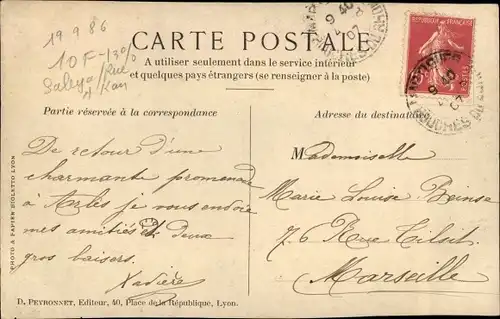 19 9 86
10 F
CARTE POSTALE
A utiliser seulement dans le service intérieur
et quelques pays étrangers (se renseigner à la poste)
REPUBLIQUE FRANCAISE
Partie réservée à la correspondance
Adresse du destinataire
De retour d'une
charmante promenade
à Arles je vous envoie
mes amitiés et deux
gros baisers.
Xavière
Mademoiselle
Marie Louise
76 Rue Tilsit
Marseille
PHOTO & PAPIER BIOLETTO LYON
D. PEYRONNET, Editeur, 40, Place de la République, Lyon.